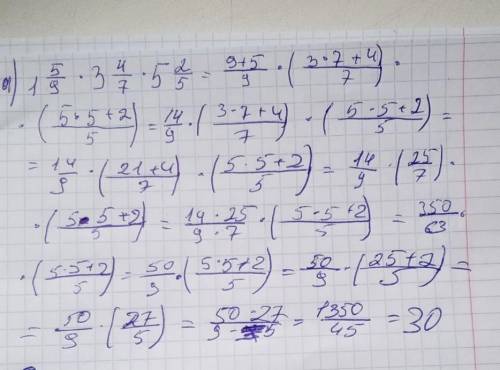 а) 1 5/9 · 3 4/7 · 5 2/5 = (9+5)/9 · ((3·7+4)/7) ·
· ((5·5+2)/5) = 14/9 · ((3·7+4)/7) · ((5·5+2)/5) =
= 14/9 · ((21+4)/7) · ((5·5+2)/5) = 14/9 · (25/7) ·
· ((5·5+2)/5) = (14·25)/(9·7) · ((5·5+2)/5) = 350/63 ·
· ((5·5+2)/5) = 50/9 · ((5·5+2)/5) = 50/9 · ((25+2)/5) =
= 50/9 · (27/5) = (50·27)/(9·5) = 1350/45 = 30